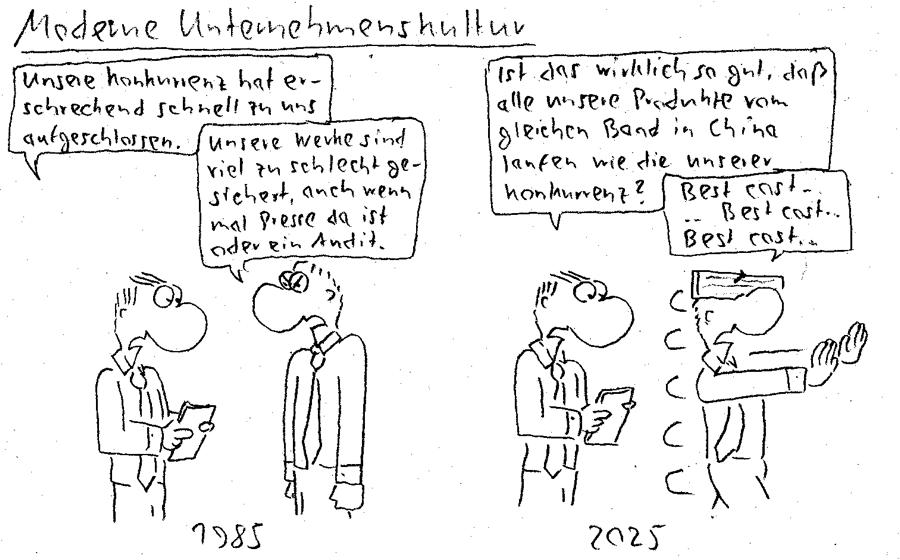 Moderne Unternehmenskultur
Unsere Konkurrenz hat er-
schreckend schnell zu uns
aufgeschlossen.
Unsere Werke sind
viel zu schlecht ge-
sichert, auch wenn
mal Presse da ist
oder ein Audit.
1985
Ist das wirklich so gut, daß
alle unsere Produkte vom
gleichen Band in China
laufen wie die unserer
Konkurrenz?
Best cost..
.. Best cost..
Best cost...
2025